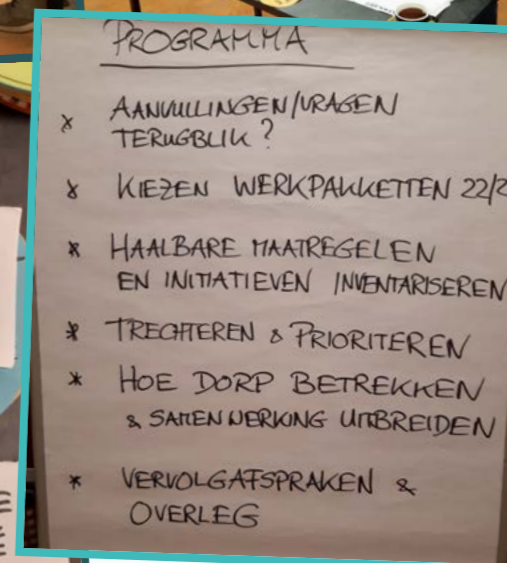 PROGRAMMA
* AANVULLINGEN/VRAGEN
TERUGBLIK?
* KIEZEN WERKPAKKETTEN 22/2
* HAALBARE MAATREGELEN
EN INITIATIEVEN INVENTARISEREN
* TRECHTEREN & PRIORITEREN
* HOE DORP BETREKKEN
& SAMENWERKING UITBREIDEN
* VERVOLGAFSPRAKEN &
OVERLEG